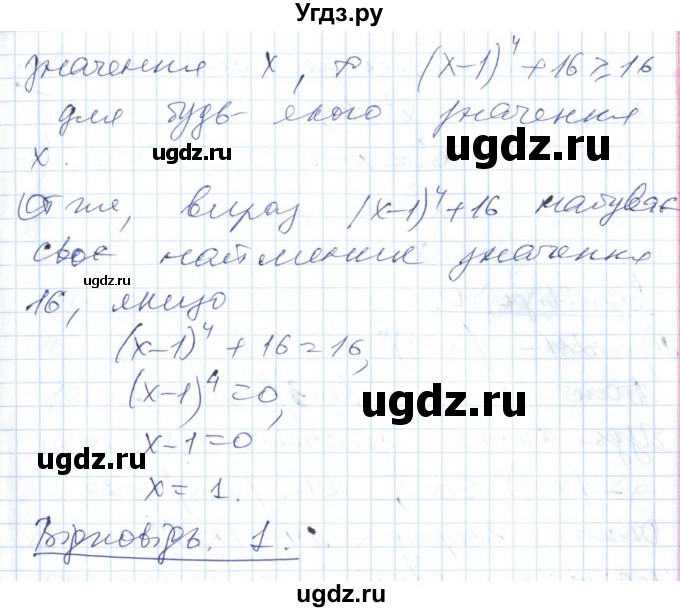 Угдз.ру
значення x, то (x-1)⁴+16≥16
для будь-якого значення
x.
Отже, вираз (x-1)⁴+16 набуває
своє найменше значення
16, якщо
(x-1)⁴+16=16,
(x-1)⁴=0,
x-1=0
x=1.
Відповідь. 1.
ugdz.ru
ugdz.ru
ugdz.ru
ugdz.ru
ugdz.ru
ugdz.ru
ugdz.ru